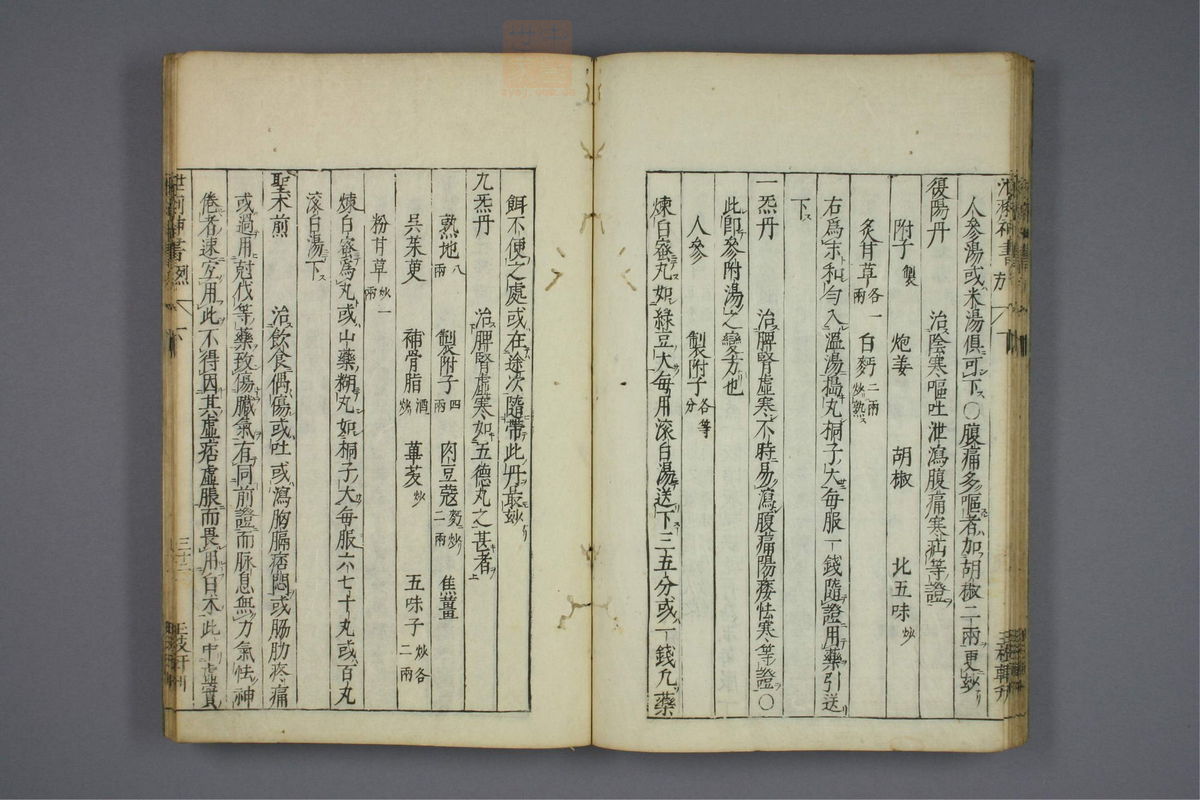 人參湯或米湯俱可下○腹痛多嘔者加胡椒二兩更妙
復陽丹 治陰寒嘔吐泄瀉腹痛寒疝等證
附子製 炮姜 胡椒 北五味炒
炙甘草各一兩 白麪二兩炒熟
右爲末和勻入溫湯搗丸桐子大每服一錢隨證用藥引送
下
一炁丹 治脾腎虛寒不時易瀉腹痛陽痿怯寒等證○
此即參附湯之變方也
人參 製附子各等分
煉白蜜丸如綠豆大每用滚白湯送下三五分或一錢凡藥
餌不便之處或在途次隨帶此丹最妙
九炁丹 治脾腎虛寒如五德丸之甚者
熟地八兩 製附子四兩 肉豆蔻麪炒二兩 焦薑
吳茱萸 補骨脂酒炒 蓽茇炒 五味子炒各二兩
粉甘草炒一兩
煉白蜜爲丸或山藥糊丸如桐子大每服六七十丸或百丸
滚白湯下
聖朮煎 治飲食偶傷或吐或瀉胸膈痞悶或胁肋疼痛
或過用尅伐等藥致傷臟氣有同前證而脉息無力氣怯神
倦者速宜用此不得因其虛痞虛脹而畏用白朮此中虛實
三十二